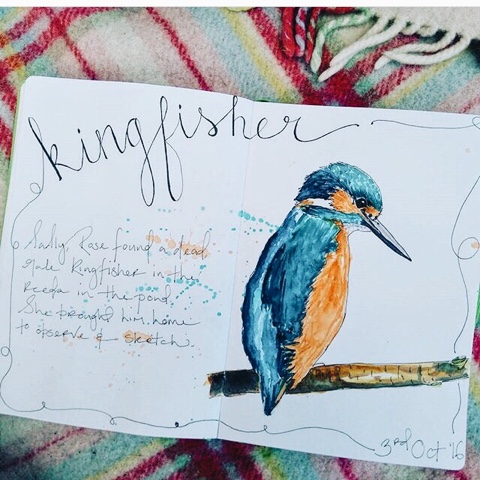 kingfisher
Sally Rose found a dead
Male Kingfisher in the
Reeds in the pond.
She brought him home
to observe & sketch.
3rd Oct '16